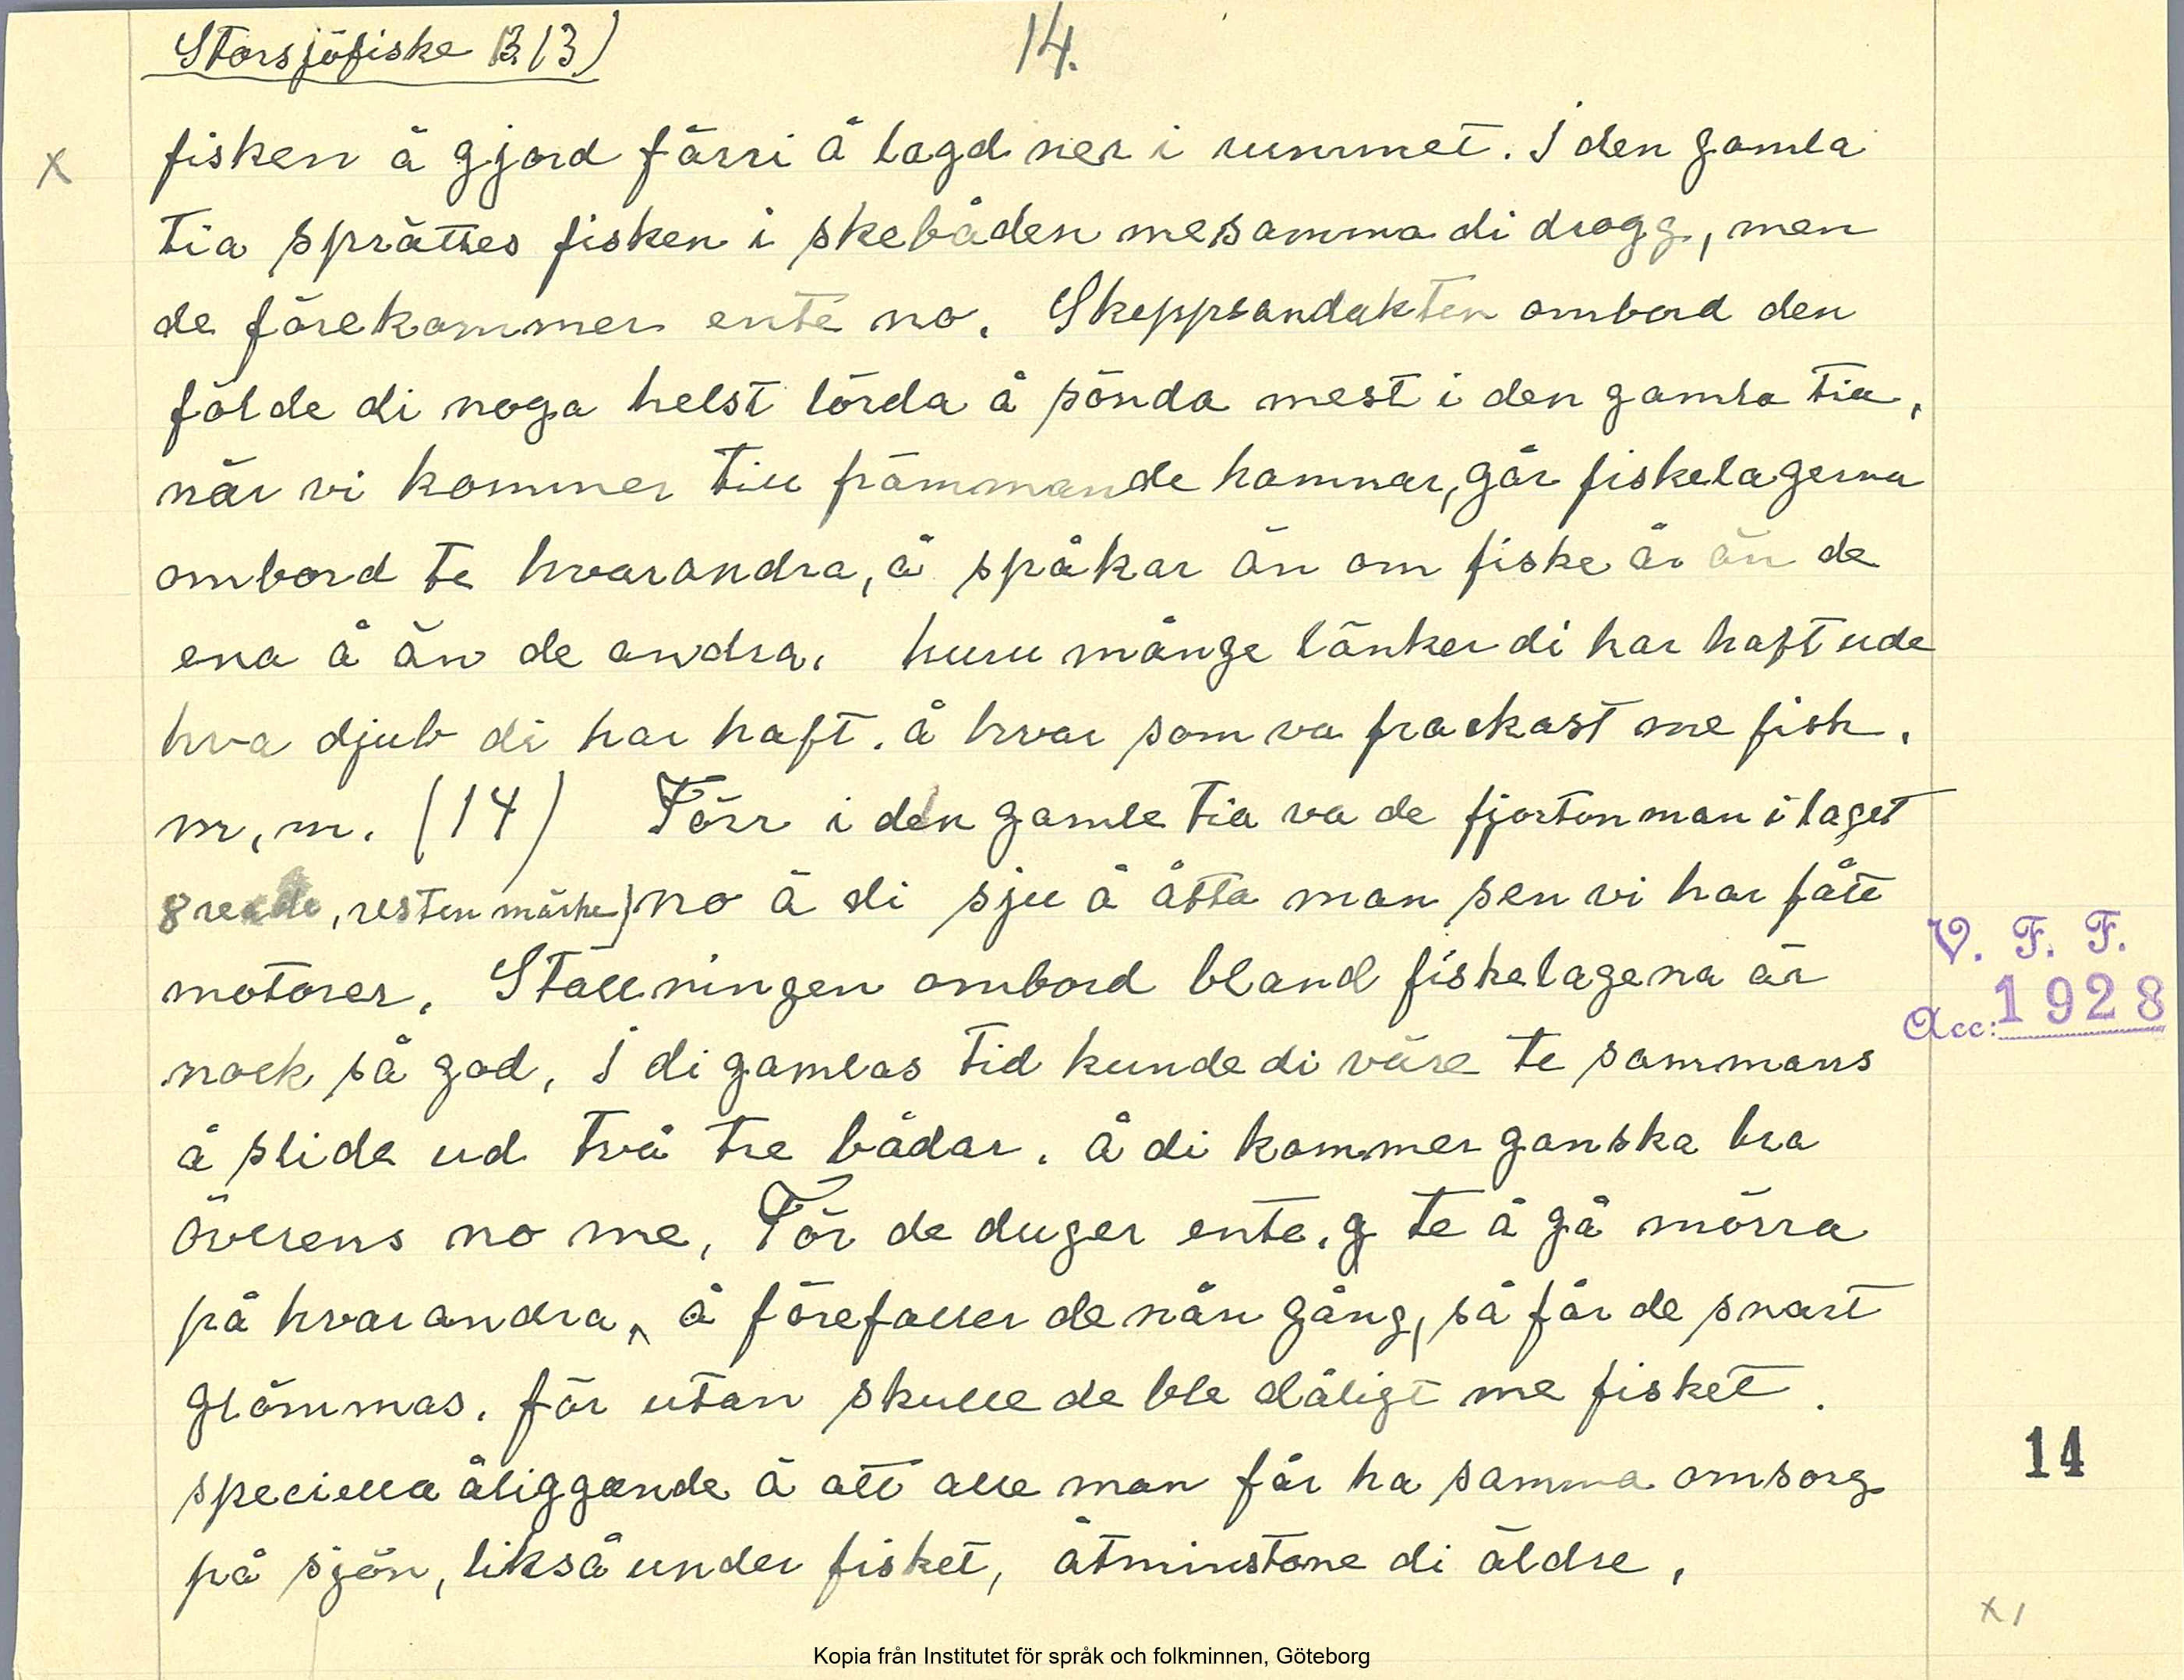 Storsjöfiske B (3)
14.
fisken ä gjord färri å lagd ner i rummet. I den gamla
tia sprättes fisken i skebåden mesamma di drogg, men
de förekommer ente no. Skeppsandakten ombord den
földe di noga helst lörda å sönda mest i den gamla tia,
när vi kommer till främmande hamnar, går fiskelagerna
ombord te hvarandra, å språkar än om fiske är än de
ena å än de andra. huru månge länker di har haft ude
hva djub di har haft. å hvar som va frackast me fisk.
m, m. (14) Förr i den gamle tia va de fjorton man i laget
8 resten märke) no ä di sju å åtta man sen vi har fått
motorer. Ställningen ombord bland fiskelagena är
nock så god, I di gamlas tid kunde di väre te sammans
å slide ud två tre bådar. å di kommer ganska bra
överens no me, För de duger ente, g te å gå mörra
på hvarandra, å förefaller de nån gång, så får de snart
glömmas. för utan skulle de ble dåligt me fisket.
speciella åliggande ä att alle man får ha samma omsorg
på sjön, likså under fisket, åtminstone di äldre,
V. F. F.
Acc: 1928
14
x
x 1
Kopia från Institutet för språk och folkminnen, Göteborg